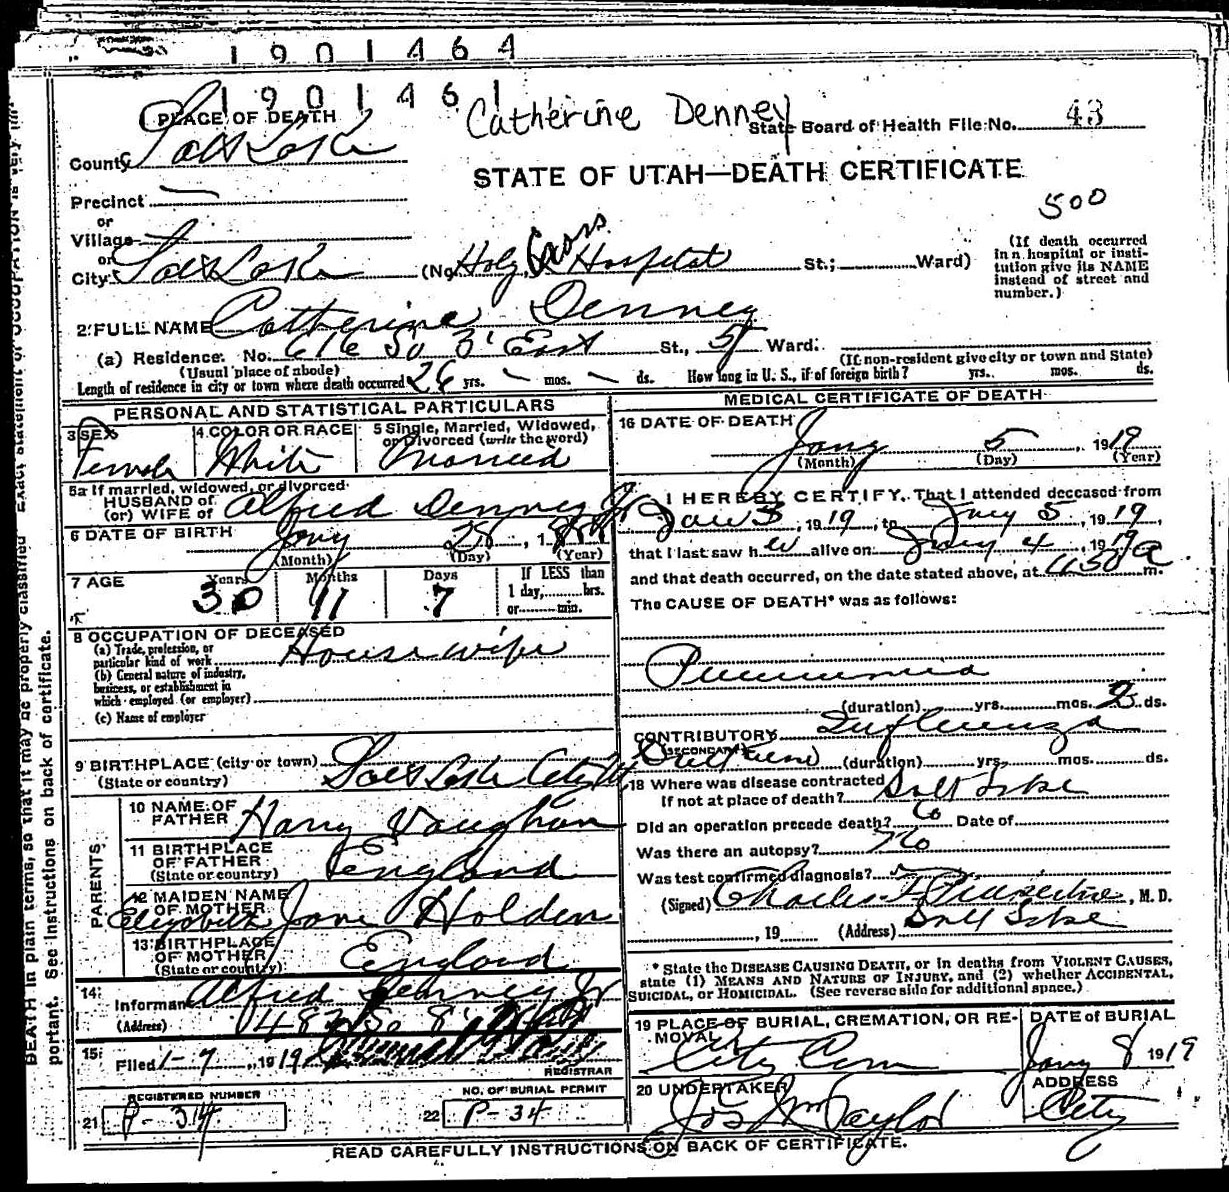 1901464
1901461
Catherine Denney
PLACE OF DEATH
State Board of Health File No. 43
County Salt Lake
STATE OF UTAH—DEATH CERTIFICATE
Precinct
500
or
Village
or
City Salt Lake (No. Holy Cross Hospital St.; Ward)
(If death occurred in a hospital or institution give its NAME instead of street and number.)
2 FULL NAME Catherine Denney
(a) Residence. No. 616 So 3' East St., 5 Ward.
(Usual place of abode) (If non-resident give city or town and State)
Length of residence in city or town where death occurred 26 yrs. — mos. — ds. How long in U. S., if of foreign birth? yrs. mos. ds.
PERSONAL AND STATISTICAL PARTICULARS
3 SEX Female
4 COLOR OR RACE White
5 Single, Married, Widowed, or Divorced (write the word) Married
5a If married, widowed, or divorced
HUSBAND of
(or) WIFE of Alfred Denney Jr
6 DATE OF BIRTH Jany 28, 1888
(Month) (Day) (Year)
7 AGE Years 30 Months 11 Days 7
If LESS than
1 day, hrs.
or min.
8 OCCUPATION OF DECEASED
(a) Trade, profession, or
particular kind of work Housewife
(b) General nature of industry,
business, or establishment in
which employed (or employer)
(c) Name of employer
9 BIRTHPLACE (city or town) Salt Lake City Ut
(State or country)
PARENTS
10 NAME OF FATHER Harry Vaughan
11 BIRTHPLACE OF FATHER England
(State or country)
12 MAIDEN NAME OF MOTHER Elizabeth Jane Holden
13 BIRTHPLACE OF MOTHER England
(State or country)
14 Informant Alfred Denney Jr
(Address)
15 Filed 1-7, 1919
REGISTRAR
REGISTERED NUMBER
21 P-34
NO. OF BURIAL PERMIT
22 P-34
MEDICAL CERTIFICATE OF DEATH
16 DATE OF DEATH Jany 5, 1919
(Month) (Day) (Year)
I HEREBY CERTIFY, That I attended deceased from
Jan 3, 1919, to Jany 5, 1919,
that I last saw her alive on Jany 4, 1919
and that death occurred, on the date stated above, at 4:30 a m.
The CAUSE OF DEATH* was as follows:
Pneumonia
(duration) yrs. mos. 2 ds.
CONTRIBUTORY Influenza
(SECONDARY)
(duration) yrs. mos. ds.
18 Where was disease contracted
If not at place of death? Salt Lake
Did an operation precede death? No Date of
Was there an autopsy? No
Was test confirmed diagnosis?
(Signed) Charles, M. D.
, 19 (Address) Salt Lake
* State the DISEASE CAUSING DEATH, or in deaths from VIOLENT CAUSES,
state (1) MEANS AND NATURE OF INJURY, and (2) whether ACCIDENTAL,
SUICIDAL, OR HOMICIDAL. (See reverse side for additional space.)
19 PLACE OF BURIAL, CREMATION, OR REMOVAL City Cem
DATE of BURIAL Jany 8 1919
20 UNDERTAKER Jos Wm Taylor
ADDRESS City
READ CAREFULLY INSTRUCTIONS ON BACK OF CERTIFICATE.
DEATH in plain terms, so that it may be properly classified. Exact statement of OCCUPATION is very important. See instructions on back of certificate.